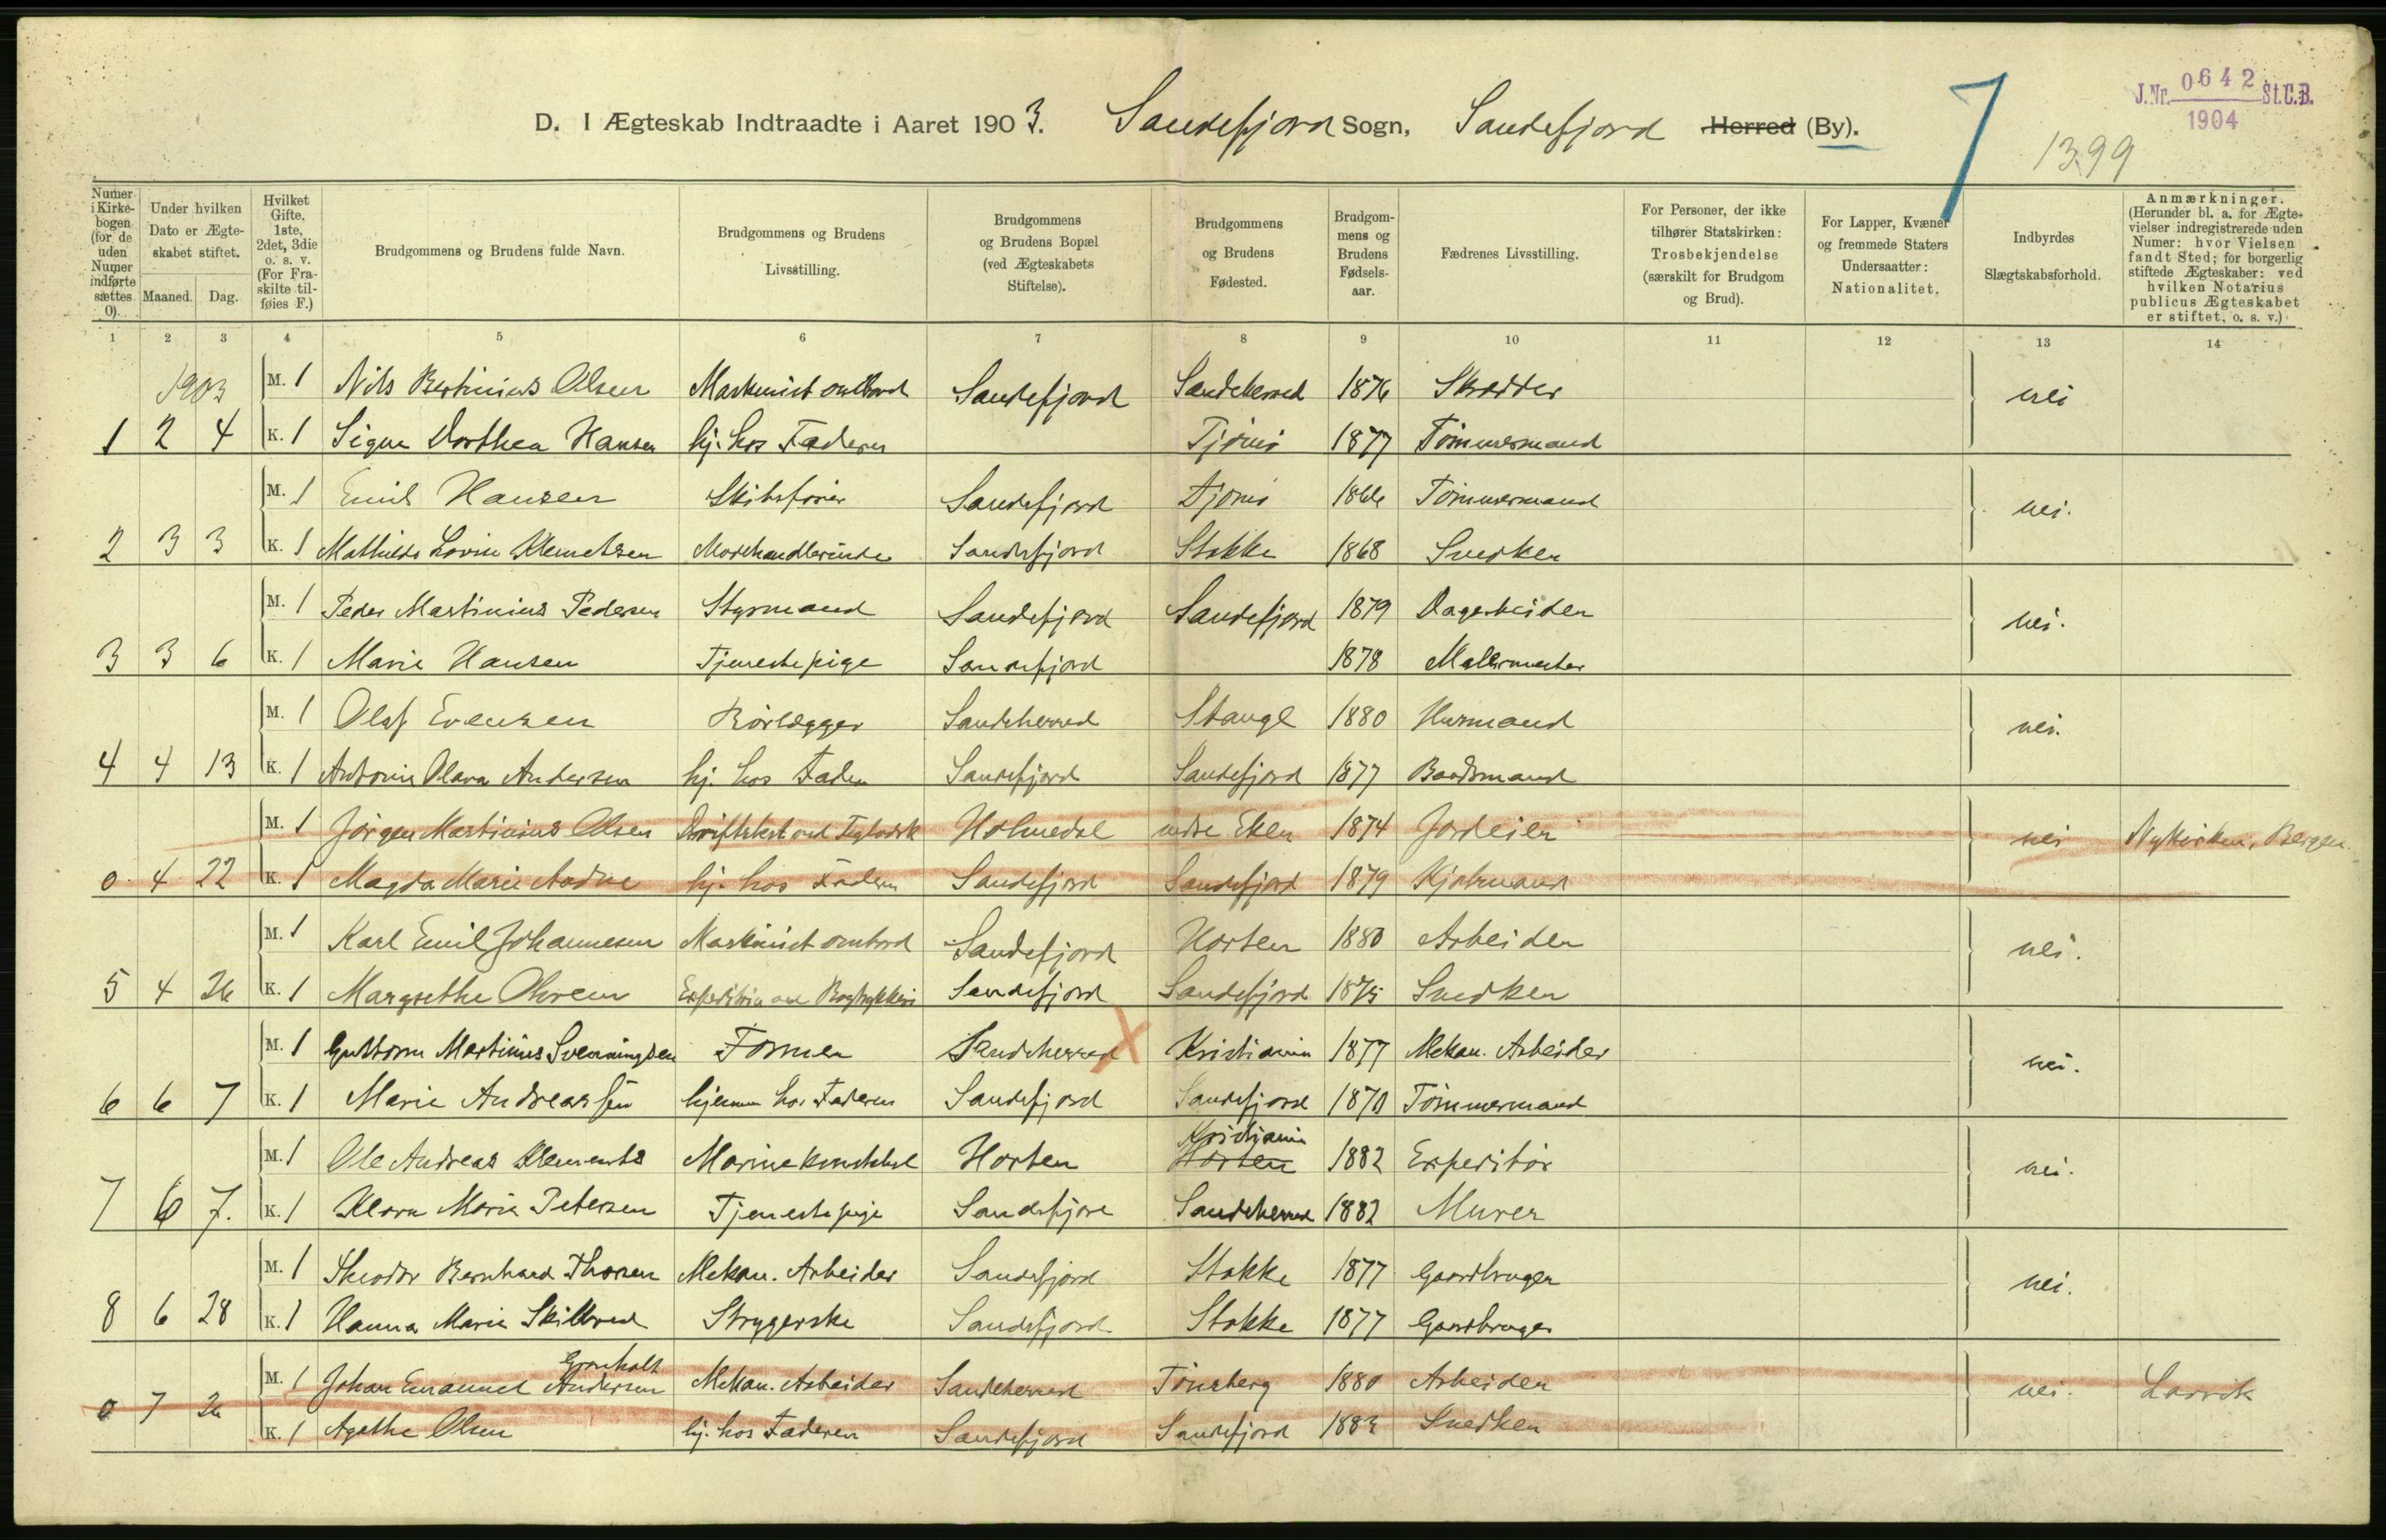 J.Nr. 0642 St.C.B.
1904
1399
7
D. I Ægteskab Indtraadte i Aaret 1903. Sandefjord Sogn, Sandefjord Herred (By).
Numer i Kirkebogen (for de uden Numer indførte sættes 0).
Under hvilken Dato er Ægteskabet stiftet.
Maaned. Dag.
Hvilket Gifte, 1ste, 2det, 3die o. s. v. (For Fraskilte tilføies F.)
Brudgommens og Brudens fulde Navn.
Brudgommens og Brudens Livsstilling.
Brudgommens og Brudens Bopæl (ved Ægteskabets Stiftelse).
Brudgommens og Brudens Fødested.
Brudgommens og Brudens Fødselsaar.
Fædrenes Livsstilling.
For Personer, der ikke tilhører Statskirken: Trosbekjendelse (særskilt for Brudgom og Brud).
For Lapper, Kvæner og fremmede Staters Undersaatter: Nationalitet.
Indbyrdes Slægtskabsforhold.
Anmærkninger. (Herunder bl. a. for Ægtevielser indregistrerede uden Numer: hvor Vielsen fandt Sted; for borgerlig stiftede Ægteskaber: ved hvilken Notarius publicus Ægteskabet er stiftet, o. s. v.)
1 2 3 4 5 6 7 8 9 10 11 12 13 14
1903 M. 1 Nils Bertinius Olsen Maskinist ombord Sandefjord Sandeherred 1876 Skrædder nei
1 2 4 K. 1 Signe Dorthea Hansen hj. hos Faderen Tjømø 1877 Tømmermand
M. 1 Emil Hansen Skibsfører Sandefjord Tjømø 1866 Tømmermand nei.
2 3 3 K. 1 Mathilde Lovise Klemetsen Modehandlerinde Sandefjord Stokke 1868 Snedker
M. 1 Peder Martinius Pedersen Styrmand Sandefjord Sandefjord 1879 Dagarbeider nei.
3 3 6 K. 1 Marie Hansen Tjenestepige Sandefjord 1878 Malermester
M. 1 Olaf Evensen Rørlægger Sandeherred Stange 1880 Husmand nei.
4 4 13 K. 1 Antonie Olava Andersen hj. hos Fader Sandefjord Sandefjord 1877 Baadsmand
M. 1 Jørgen Martinius Olsen Holmedal 1874 Jordeier nei Nykirken, Bergen
0 4 22 K. 1 Magda Marie hj. hos Faderen Sandefjord Sandefjord 1879 Kjøbmand
M. 1 Karl Emil Johannesen Maskinist ombord Sandefjord Horten 1880 Arbeider nei.
5 4 26 K. 1 Margrethe Sandefjord Sandefjord 1875 Snedker
M. 1 Guttorm Martinius Svenningsen Former Sandeherred X Kristiania 1877 Mekan. Arbeider nei.
6 6 7 K. 1 Marie Andreassen hjemme hos Faderen Sandefjord Sandefjord 1870 Tømmermand
Kristiania
M. 1 Ole Andreas Klements Horten Horten 1882 Expeditør nei.
7 6 7. K. 1 Klara Marie Petersen Tjenestepige Sandefjord Sandeherred 1882 Murer
M. 1 Theodor Bernhard Thorsen Mekan. Arbeider Sandefjord Stokke 1877 Gaardbruger nei.
8 6 28 K. 1 Hanna Marie Skillebred Strygerske Sandefjord Stokke 1877 Gaardbruger
Gronholt
M. 1 Johan Emanuel Andersen Mekan. Arbeider Sandeherred Tønsberg 1880 Arbeider nei. Larvik
0 7 26 K. 1 Agathe Olsen hj. hos Faderen Sandefjord Sandefjord 1883 Snedker